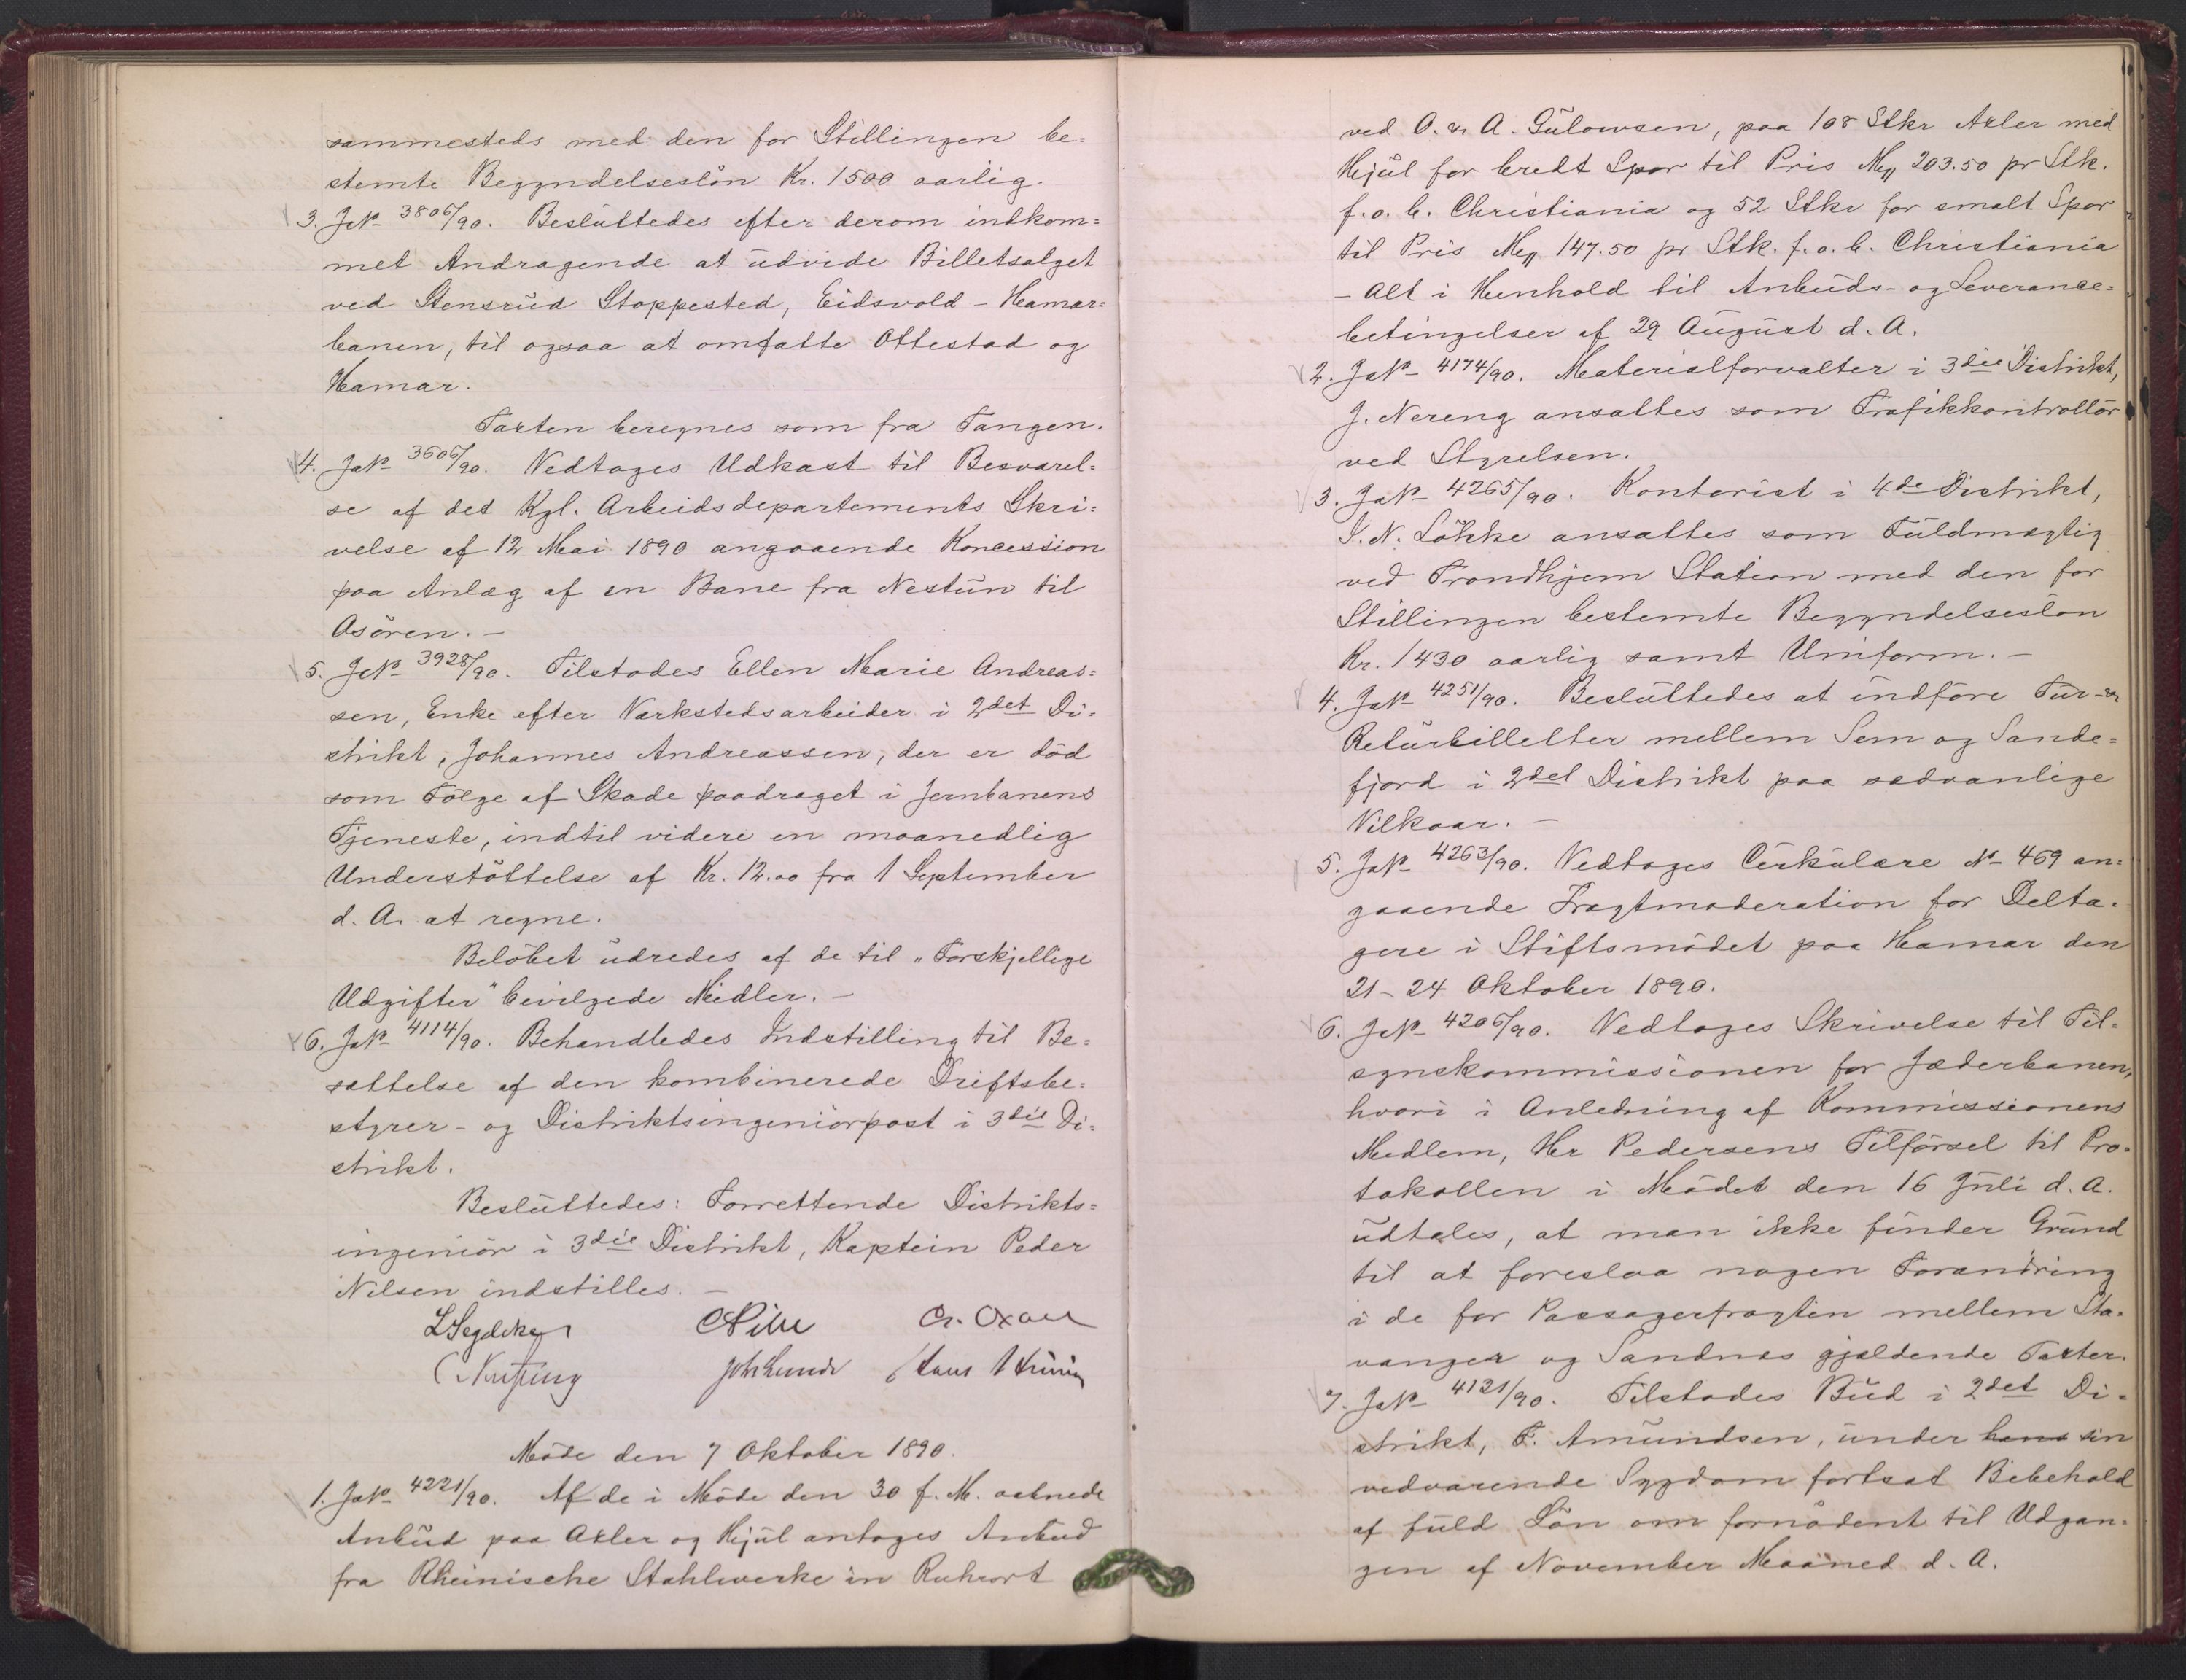 sammesteds med den for Stillingen be=
stemte Begyndelseslön Kr. 1500 aarlig.
3. JN° 3806/90. Besluttedes efter derom indkom=
met Andragende at udvide Billetsalget
ved Stensrud Stoppested, Eidsvold - Hamar=
banen, til ogsaa at omfatte Ottestad og
Hamar.
Taxten beregnes som fra Tangen.
4. JN° 3606/90. Vedtoges Udkast til Besvarel=
se af det Kgl. Arbeidsdepartements Skri=
velse af 12 Mai 1890 angaaende Koncession
paa Anlæg af en Bane fra Nestun til
Osören. -
5. JN° 3928/90. Tilstodes Ellen Marie Andreas=
sen, Enke efter Værkstedsarbeider i 2det Di=
strikt, Johannes Andreassen, der er död
som Fölge af Skade paadraget i Jernbanens
Tjeneste, indtil videre en maanedlig
Understöttelse af Kr. 12.00 fra 1 September
d. A. at regne.
Belöbet udredes af de til "Forskjellige
Udgifter" bevilgede Midler. -
6. JN° 4114/90. Behandledes Indstilling til Be=
sættelse af den kombinerede Driftsbe=
styrer- og Distriktsingeniörpost i 3die Di=
strikt.
Besluttedes: Forrettende Distrikts=
ingeniör i 3die Distrikt, Kaptein Peder
Nilsen indstilles. -
C Pihl
Möde den 7 Oktober 1890.
1. JN° 4221/90. Af de i Möde den 30 f. M. aabnede
Anbud paa Axler og Hjul antoges Anbud
fra Rheinische Stahlwerke in Ruhrort
ved O. & A. Gulowsen, paa 108 Stkr Axler med
Hjul for bredt Spor til Pris Mk 203.50 pr Stk.
f.o.b. Christiania og 52 Stkr for smalt Spor
til Pris Mk 147.50 pr Stk. f.o.b. Christiania
- Alt i Henhold til Anbuds- og Leverance=
betingelser af 29 August d. A.
2. JN° 4174/90. Materialforvalter i 3die Distrikt,
J. Nereng ansattes som Trafikkontrollör
ved Styrelsen.
3. JN° 4265/90. Kontorist i 4de Distrikt,
I. N. Lökke ansattes som Fuldmægtig
ved Trondhjem Station med den for
Stillingen bestemte Begyndelseslön
Kr. 1430 aarlig samt Uniform. -
4. JN° 4251/90. Besluttedes at indföre Tur- &
Returbilletter mellem Sem og Sande=
fjord i 2det Distrikt paa sædvanlige
Vilkaar. -
5. JN° 4263/90. Vedtoges Cirkulære N° 469 an=
gaaende Fragtmoderation for Delta=
gere i Stiftsmödet paa Hamar den
21-24 Oktober 1890.
6. JN° 4206/90. Vedtoges Skrivelse til Til=
synskommissionen for Jæderbanen,
hvori i Anledning af Kommissionens
Medlem, Hr Pedersens Tilförsel til Pro=
tokollen i Mödet den 16 Juli d. A.
udtales, at man ikke finder Grund
til at foreslaa nogen Forandring
i de for Passagerfragten mellem Sta=
vanger og Sandnes gjældende Taxter.
7. JN° 4121/90. Tilstodes Bud i 2det Di=
strikt, F. Amundsen, under hans sin
vedvarende Sygdom fortsat Bibehold
af fuld Lön om fornödent til Udgan=
gen af November Maaned d. A.